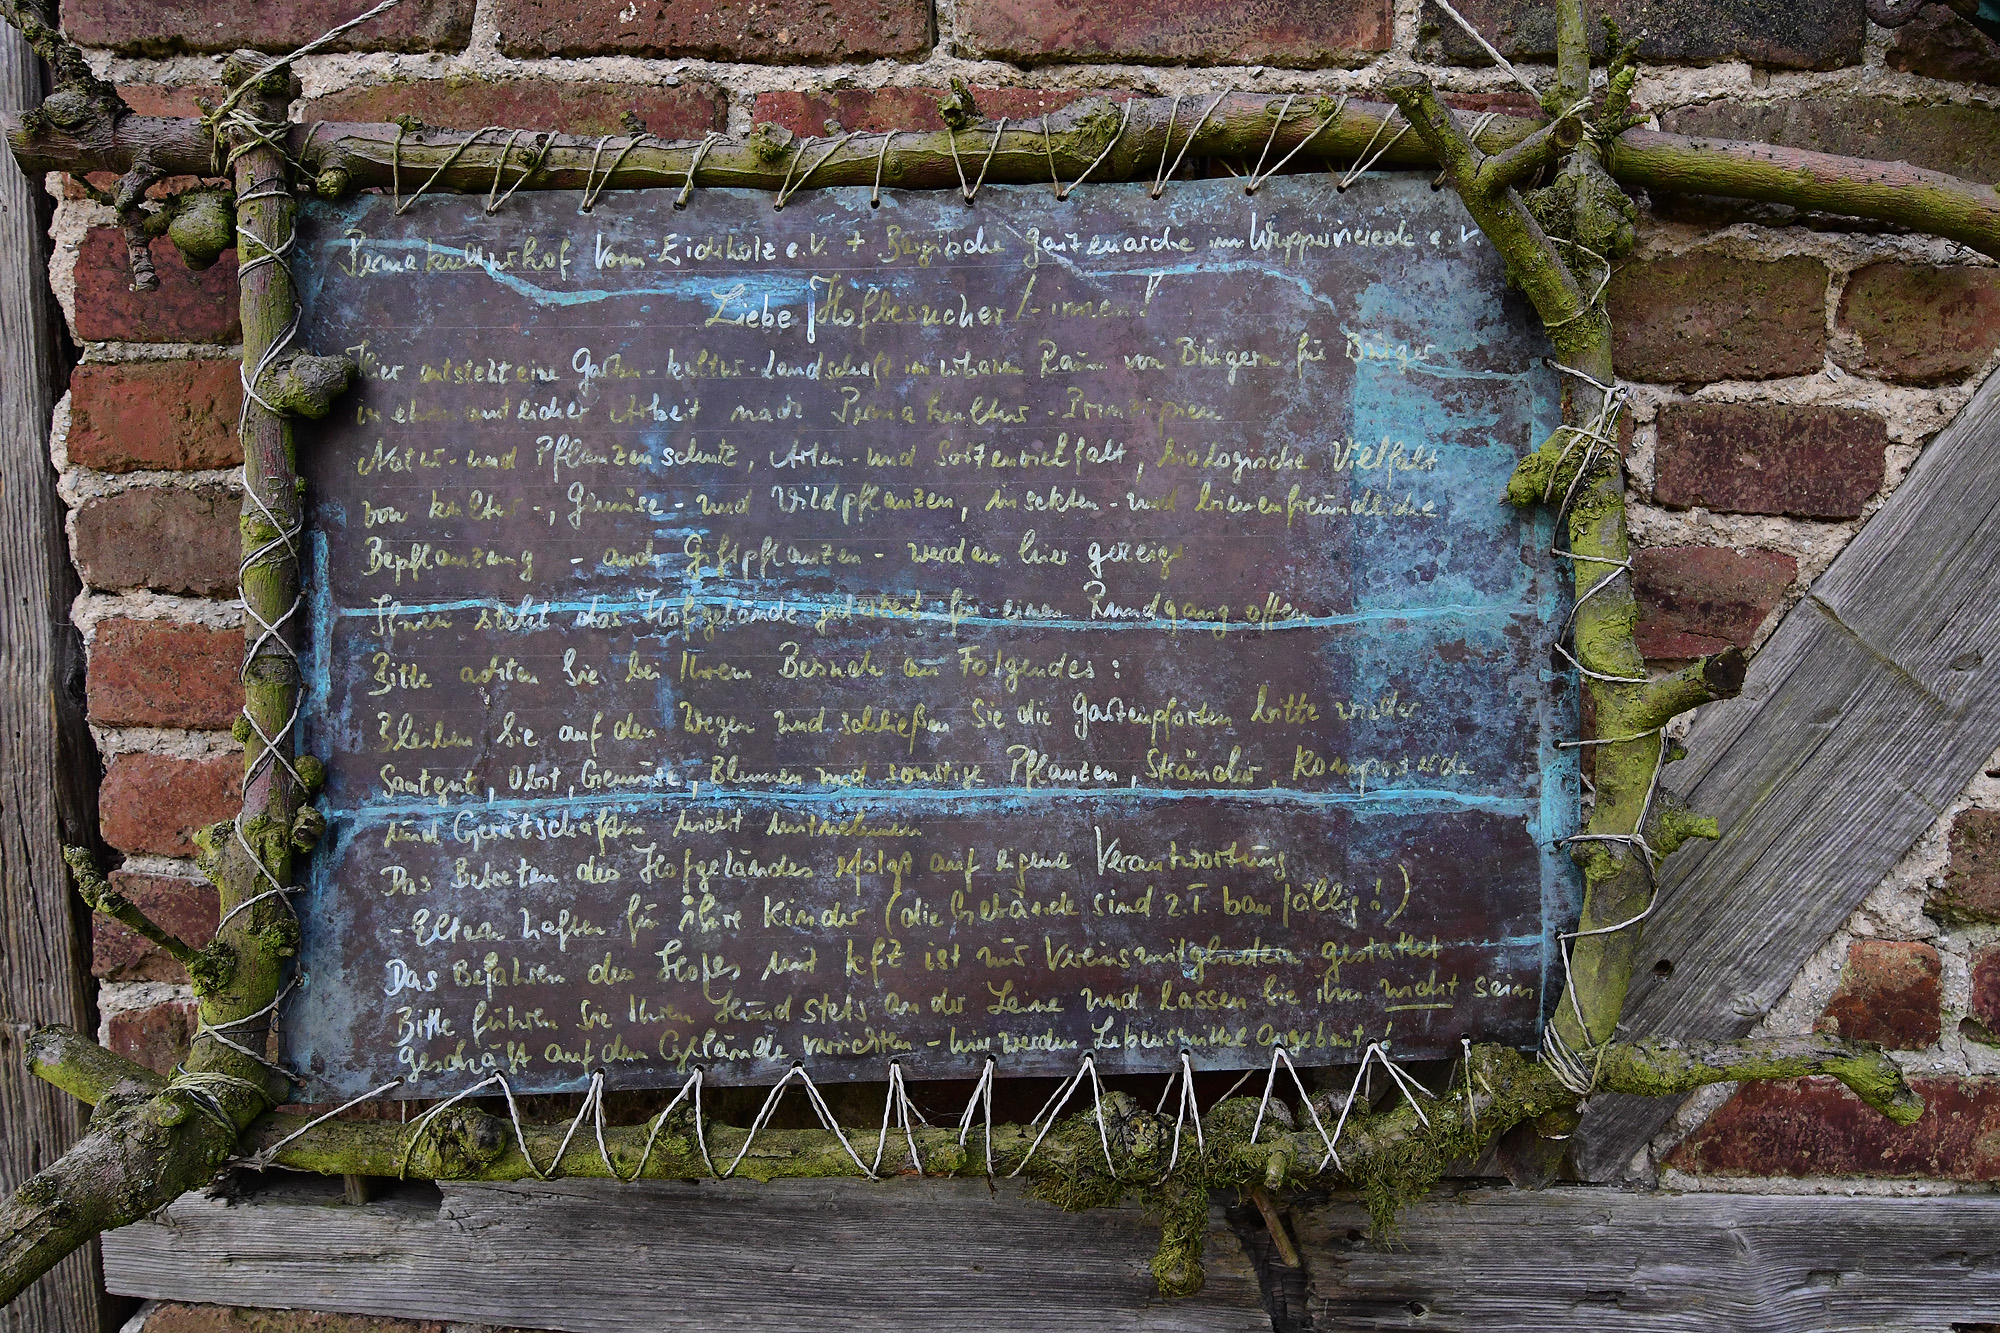 Permakulturhof Vorm Eichholz e.V. + Bergische Gartenarche im Wupperviereck e.V.
Liebe Hofbesucher/-innen!
Hier entsteht eine Garten-kultur-Landschaft im urbanen Raum von Bürgern für Bürger
in ehrenamtlicher Arbeit nach Permakultur-Prinzipien
Natur- und Pflanzenschutz, Arten- und Sortenvielfalt, biologische Vielfalt
von kultur-, Gemüse- und Wildpflanzen, insekten- und bienenfreundliche
Bepflanzung - auch Giftpflanzen - werden hier gezeigt
Ihnen steht das Hofgelände jederzeit für einen Rundgang offen
Bitte achten Sie bei Ihrem Besuch an Folgendes:
Bleiben Sie auf den Wegen und schließen Sie die Gartenpforten bitte wieder
Saatgut, Obst, Gemüse, Blumen und sonstige Pflanzen, Sträucher, Komposterde
und Gerätschaften nicht mitnehmen
Das Betreten des Hofgeländes erfolgt auf eigene Verantwortung
- Eltern haften für ihre Kinder (die Gebäude sind z.T. baufällig!)
Das Befahren des Hofes mit kfz ist nur Vereinsmitgliedern gestattet
Bitte führen Sie Ihren Hund stets an der Leine und lassen Sie ihn nicht sein
geschäft auf dem Gelände verrichten - hier werden Lebensmittel angebaut!